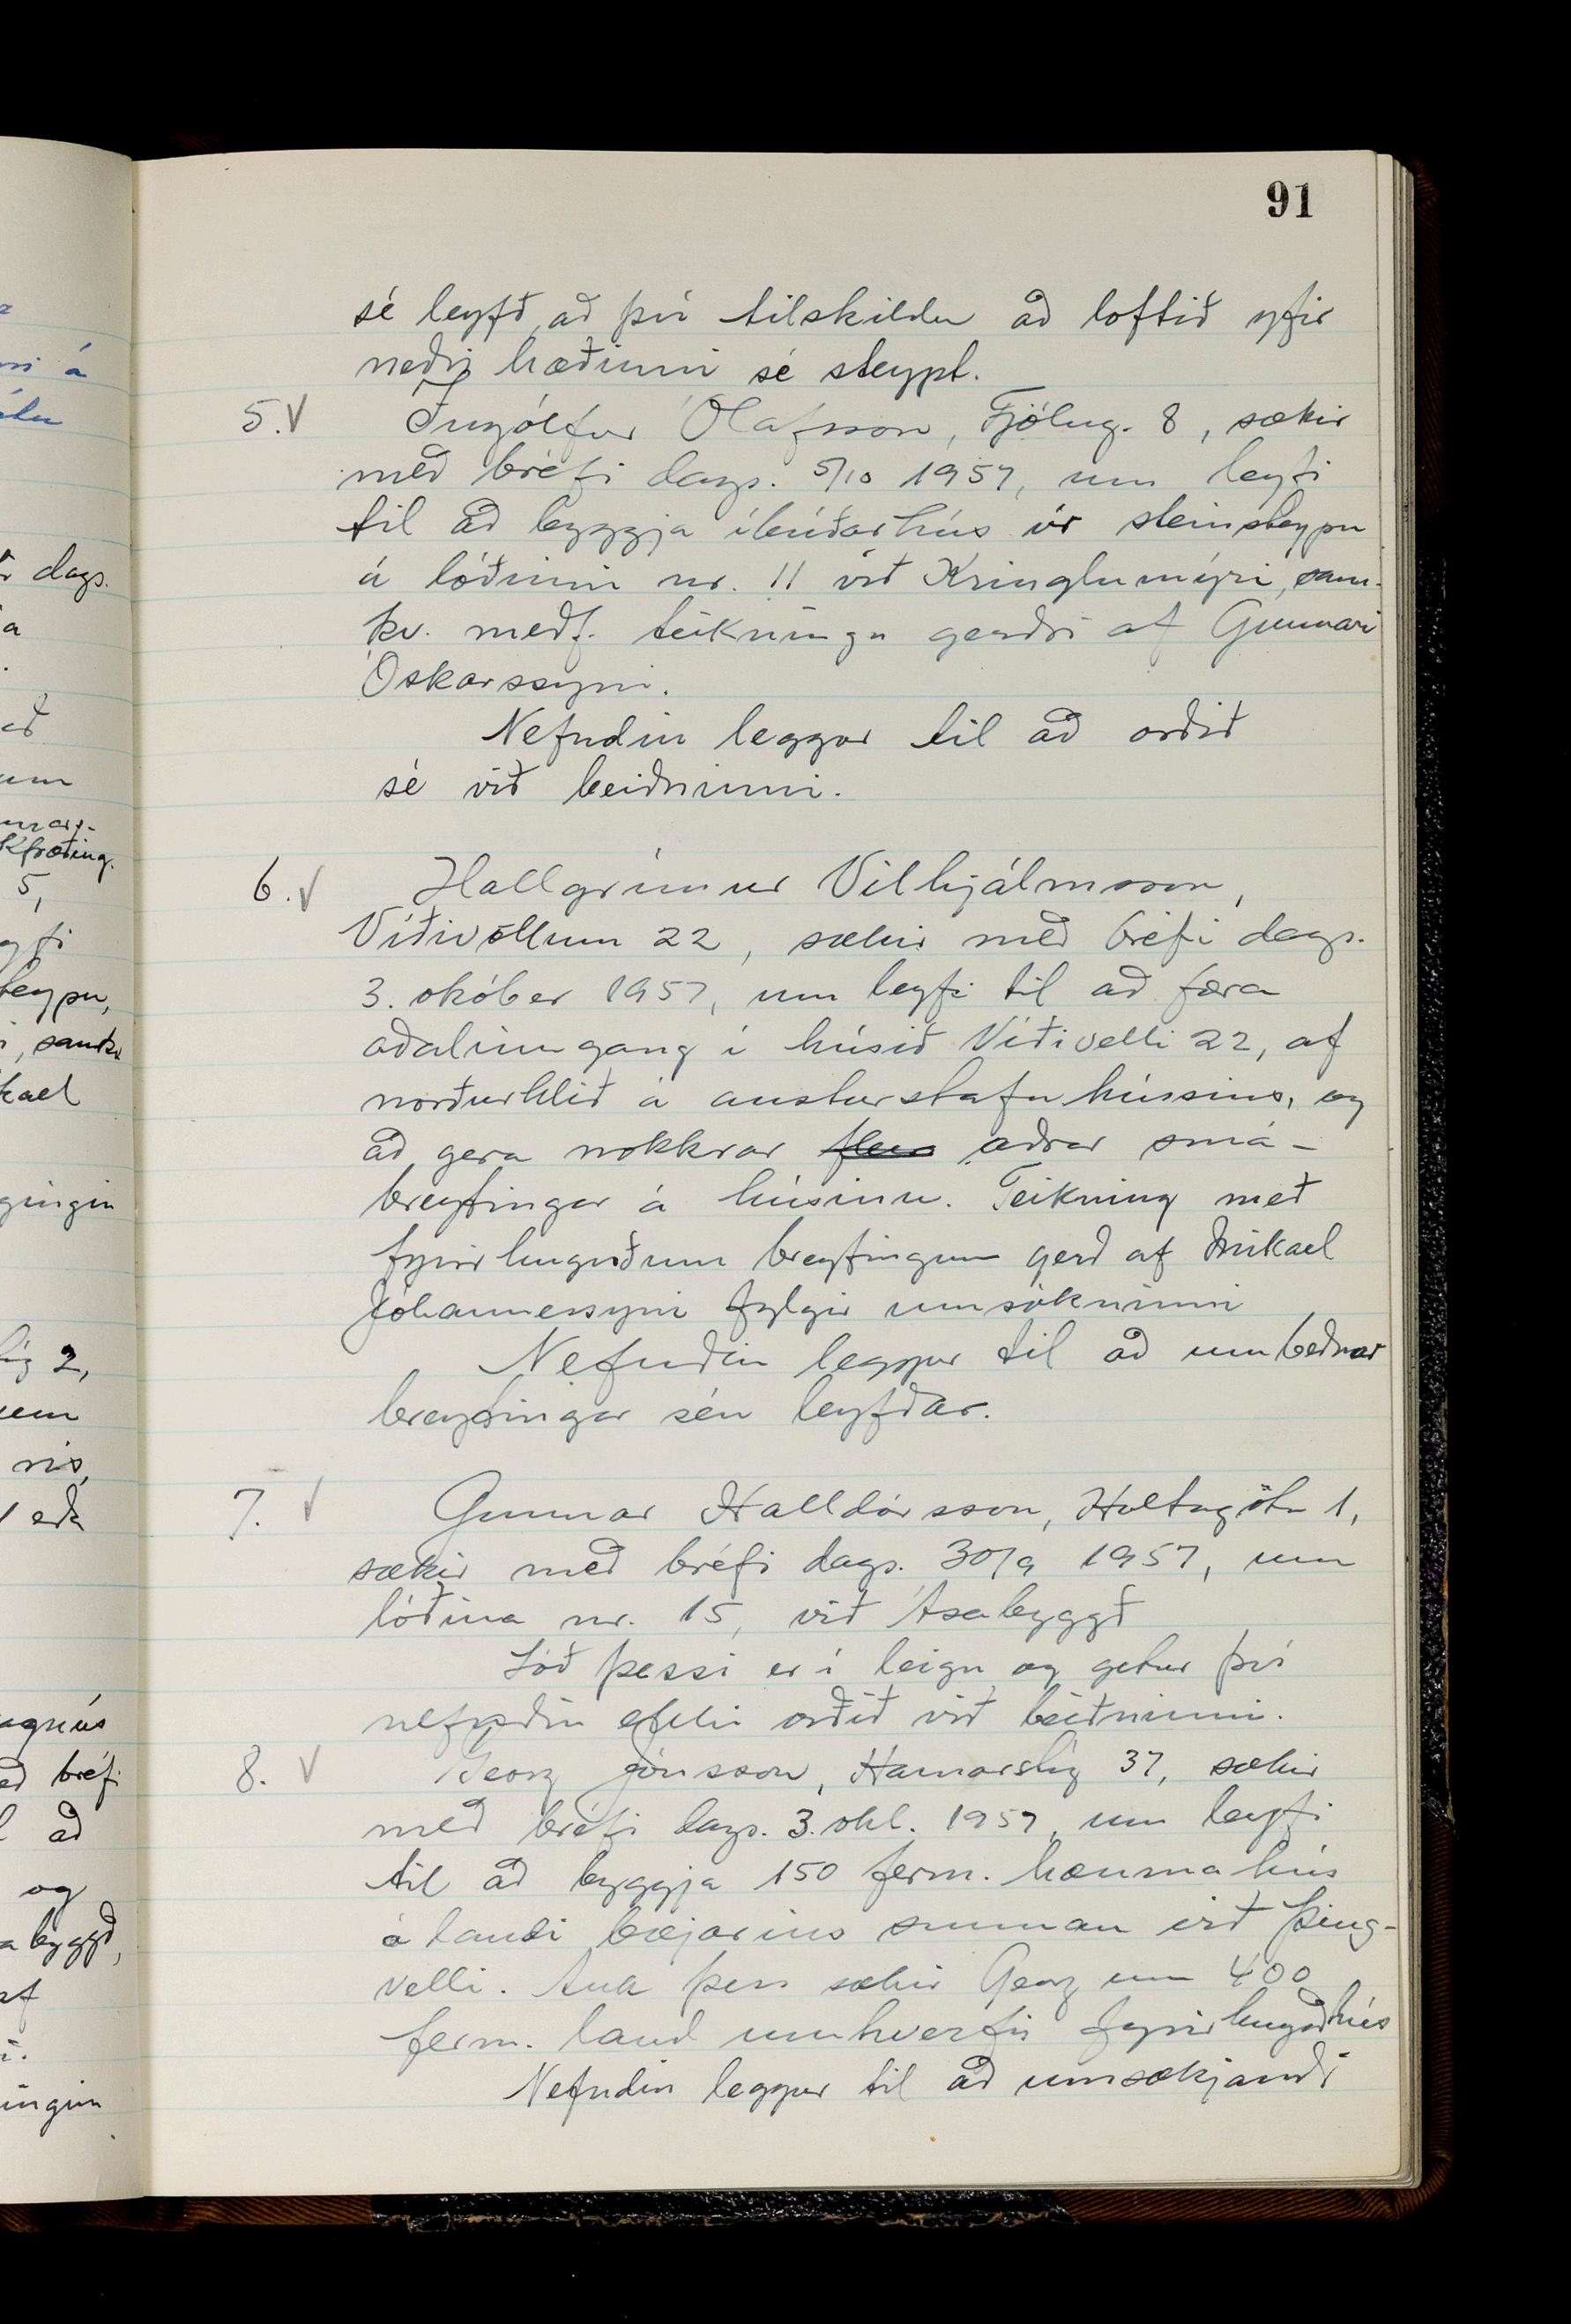 91
sé leyfð, að því tilskildu að loftið yfir
neðri hæðinni sé steypt.
5. V Ingólfur Ólafsson, Fjólug. 8, sækir
með bréfi dags. 5/10 1957, um leyfi
til að byggja íbúðarhús úr steinsteypu
á lóðinni nr. 11 við Kringlumýri, sam-
kv. meðf. teikningu gerðri af Gunnari
Óskarssyni.
Nefndin leggur til að orðið
sé við beiðninni.
6. V Hallgrímur Vilhjálmsson,
Víðivöllum 22, sækir með bréfi dags.
3. okóber 1957, um leyfi til að færa
aðalinngang í húsið Víðivelli 22, af
norðurhlið á austurstafn hússins, og
að gera nokkrar aðrar smá-
breytingar á húsinu. Teikning með
fyrirhuguðum breytingum gerð af Mikael
Jóhannessyni fylgir umsókninni
Nefndin leggur til að umbeðnar
breytingar séu leyfðar.
7. V Gunnar Halldórsson, Holtagötu 1,
sækir með bréfi dags. 30/9 1957, um
lóðina nr. 15, við Ásabyggð
Lóð þessi er í leigu og getur því
nefndin ekki orðið við beiðninni.
8. V Georg Jónsson, Hamarstíg 37, sækir
með bréfi dags. 3. okt. 1957, um leyfi
til að byggja 150 ferm. hænsnahús
á landi bæjarins sunnan við Þing-
velli. Auk þess sækir Georg um 400
ferm. land umhverfis fyrirhugað hús
Nefndin leggur til að umsækjandi